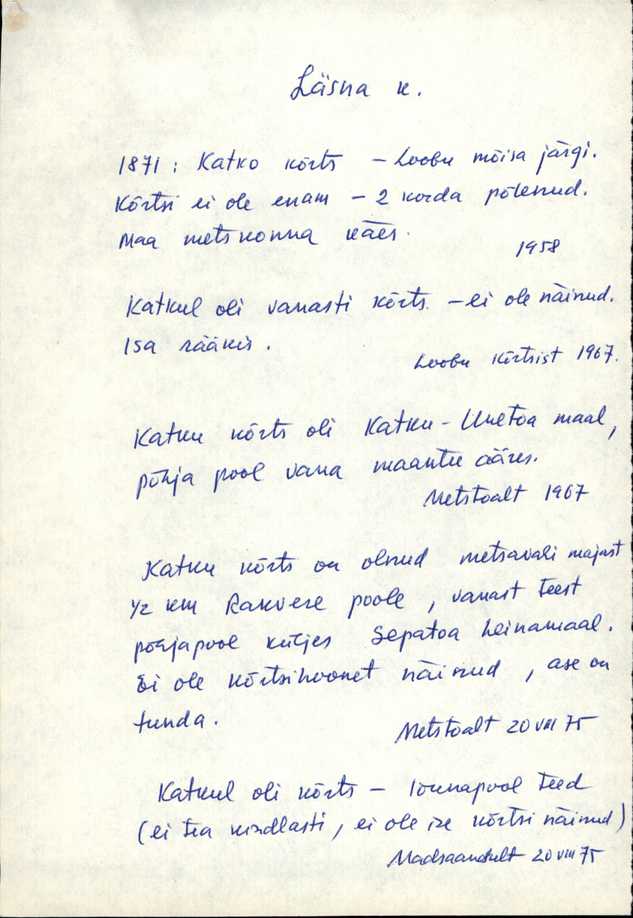 Läsna k.
1871: Katko kõrts – Loobu mõisa järgi.
Kõrtsi ei ole enam – 2 korda põlenud.
Maa metskonna käes.
1958
Katkul oli vanasti kõrts. – ei ole näinud.
Isa rääkis.
Loobu Kõrtsist 1967.
Katku kõrts oli Katku-Uuetoa maal,
põhja pool vana maantee ääres.
Metstoalt 1967
Katku kõrts on olnud metsavahi majast
1/2 km Rakvere poole, vanast teest
põhjapool küljes Sepatoa heinamaal.
Ei ole kõrtsihoonet näinud, ase on
tunda.
Metstoalt 20 VIII 75
Katkul oli kõrts – lõunapool teed
(ei tea kindlasti, ei ole ise kõrtsi näinud)
20 VIII 75